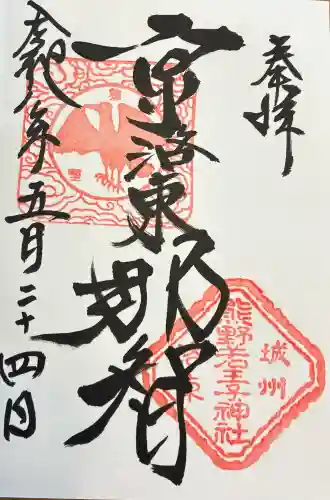 奉拝
京洛東那智
年五月二十四日
城州
熊野若王子神社